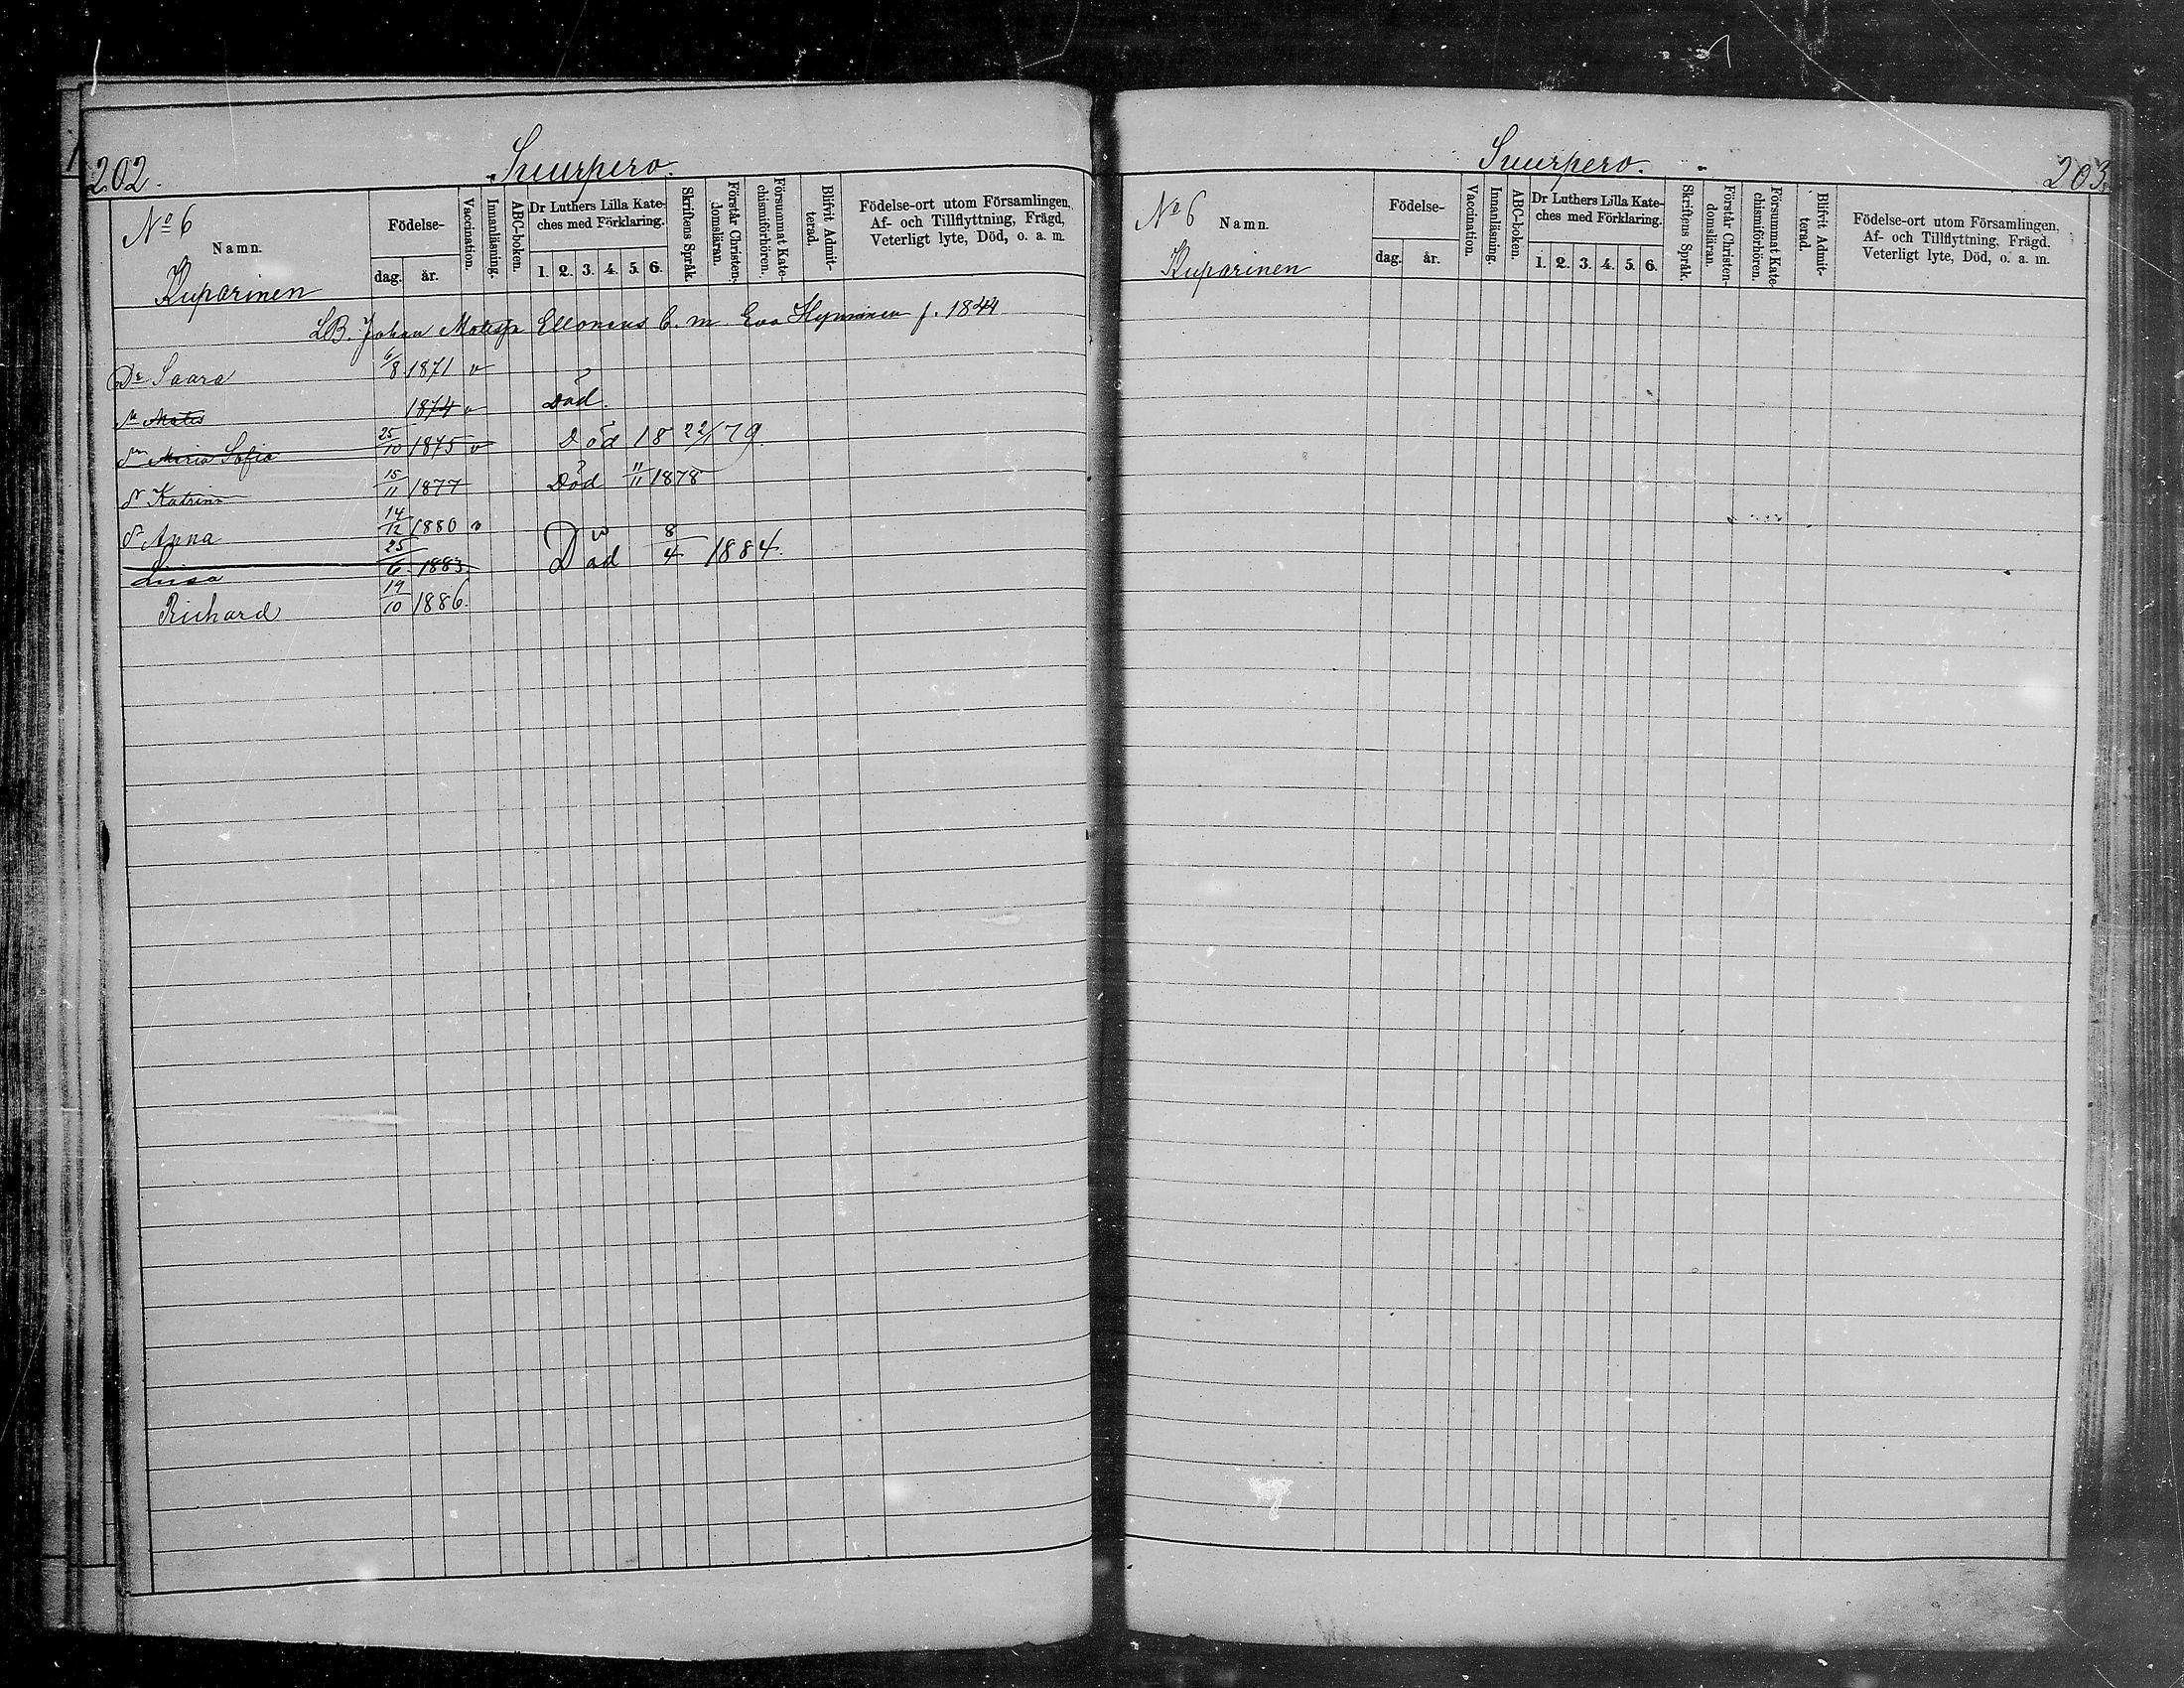 202.
Suurpero.
No 6
Namn.
Kuparinen
Födelse-
dag.
år.
Vaccination.
Innanläsning.
ABC-boken.
Dr Luthers Lilla Kate-
ches med Förklaring.
1. 2. 3. 4. 5. 6.
Skriftens Språk.
Förstår Christen-
domsläran.
Försummat Kate-
chismiförhören.
Blifvit Admit-
terad.
Födelse-ort utom Församlingen,
Af- och Tillflyttning, Frägd,
Veterligt lyte, Död, o. a. m.
LB. Johan Matssn Ellonens b. m. Eva f. 1844
Dr Saara 6/8 1871 v
1874 v Död.
Dr Maria Sofia 25/10 1875 v Död 18 22/1 79.
dr Katrina 15/11 1877 Död 11/11 1878
dr Anna 14/12 1880 v
Liisa 25/6 1883. Död 8/4 1884.
Richard 19/10 1886.
Suurpero.
203.
No 6
Namn.
Kuparinen
Födelse-
dag.
år.
Vaccination.
Innanläsning.
ABC-boken.
Dr Luthers Lilla Kate-
ches med Förklaring.
1. 2. 3. 4. 5. 6.
Skriftens Språk.
Förstår Christen-
domsläran.
Försummat Kate-
chismiförhören.
Blifvit Admit-
terad.
Födelse-ort utom Församlingen,
Af- och Tillflyttning, Frägd,
Veterligt lyte, Död, o. a. m.